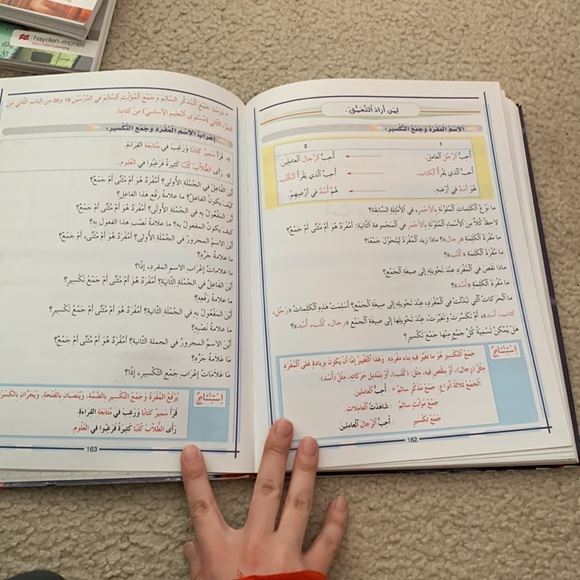 hayden-mcneil
لِمَنْ أَرَادَ التَّعَمُّقَ:
اَلِاسْمُ الْمُفْرَدُ وَجَمْعُ التَّكْسِيرِ:
1
2
أُحِبُّ الرَّجُلَ الْعَامِلَ.
أُحِبُّ الرِّجَالَ الْعَامِلِينَ
أُحِبُّ الَّذِي يَقْرَأُ الْكِتَابَ.
أُحِبُّ الَّذِي يَقْرَأُ الْكُتُبَ.
هُوَ أَسَدٌ فِي أَرْضِهِ.
هُمْ أُسْدٌ فِي أَرْضِهِمْ.
مَا نَوْعُ الْكَلِمَاتِ الْمُلَوَّنَةِ بِالْأَحْمَرِ، فِي الْأَمْثِلَةِ السَّابِقَةِ؟
لَاحِظْ كُلًّا مِنَ الْأَسْمَاءِ الْمُلَوَّنَةِ بِالْأَحْمَرِ فِي الْمَجْمُوعَةِ الثَّانِيَةِ: أَمُفْرَدٌ هُوَ أَمْ مُثَنًّى أَمْ جَمْعٌ؟
مَا مُفْرَدُ الْكَلِمَةِ «رِجَال»؟ مَاذَا زِيدَ الْمُفْرَدُ لِيَتَحَوَّلَ جَمْعًا؟
مَا مُفْرَدُ الْكَلِمَةِ «كُتُب»؟
مَاذَا نَقَصَ فِي الْمُفْرَدِ عِنْدَ تَحْوِيلِهِ إِلَى صِيغَةِ الْجَمْعِ؟
مَا مُفْرَدُ الْكَلِمَةِ «أُسْد»؟
مَا الْحَرَكَاتُ الَّتِي تَبَدَّلَتْ فِي الْمُفْرَدِ، عِنْدَ تَحْوِيلِهِ إِلَى صِيغَةِ الْجَمْعِ؟ أَسَلِمَتْ هَذِهِ الْكَلِمَاتُ «رَجُل،
كِتَاب، أَسَد»، أَمْ تَكَسَّرَتْ وَتَغَيَّرَتْ، عِنْدَ تَحْوِيلِهَا إِلَى صِيغَةِ الْجَمْعِ «رِجَال، كُتُب، أُسْد»؟
هَلْ يُمْكِنُ تَسْمِيَةُ كُلِّ جَمْعٍ مِنْهَا جَمْعَ تَكْسِيرٍ؟
إِسْتِنْتَاجٌ
جَمْعُ التَّكْسِيرِ هُوَ مَا تَغَيَّرَ فِيهِ بِنَاءُ مُفْرَدِهِ. وَهَذَا التَّغْيِيرُ إِمَّا أَنْ يَكُونَ بِزِيَادَةٍ عَلَى الْمُفْرَدِ
مِثْلُ (رِجَال)، أَوْ بِنَقْصٍ فِيهِ، مِثْلُ (كُتُب)، أَوْ بِتَبْدِيلِ حَرَكَاتِهِ، مِثْلُ (أُسْد).
اَلْجَمْعُ ثَلَاثَةُ أَنْوَاعٍ: جَمْعُ مُذَكَّرٍ سَالِمٌ: أُحِبُّ الْعَامِلِينَ
جَمْعُ مُؤَنَّثٍ سَالِمٌ: شَاهَدْتُ الْعَامِلَاتِ.
جَمْعُ تَكْسِيرٍ : أُحِبُّ الرِّجَالَ الْعَامِلِينَ
162
دَرَسْنَا جَمْعَ الْمُذَكَّرِ السَّالِمَ وَجَمْعَ الْمُؤَنَّثِ السَّالِمَ فِي الدَّرْسَيْنِ 19 و20 مِنَ الْبَابِ الثَّانِي مِنَ
الْجُزْءِ الثَّانِي (مُسْتَوَى التَّعْلِيمِ الْأَسَاسِيِّ) مِنْ كِتَابِنَا.
إِعْرَابُ الِاسْمِ الْمُفْرَدِ وَجَمْعِ التَّكْسِيرِ:
1. قَرَأَ سَمِيرٌ كِتَابًا وَرَغِبَ فِي مُتَابَعَةِ الْقِرَاءَةِ.
2. رَأَى الطُّلَّابُ كُتُبًا كَثِيرَةً فَرَغِبُوا فِي الْعُلُومِ.
أَيْنَ الْفَاعِلُ فِي الْجُمْلَةِ الْأُولَى؟ أَمُفْرَدٌ هُوَ أَمْ مُثَنًّى أَمْ جَمْعٌ؟
كَيْفَ يَكُونُ الْفَاعِلُ؟ مَا عَلَامَةُ رَفْعِ هَذَا الْفَاعِلِ؟
أَيْنَ الْمَفْعُولُ بِهِ فِي الْجُمْلَةِ الْأُولَى؟ أَمُفْرَدٌ هُوَ أَمْ مُثَنًّى أَمْ جَمْعٌ؟
كَيْفَ يَكُونُ الْمَفْعُولُ بِهِ؟ مَا عَلَامَةُ نَصْبِ هَذَا الْمَفْعُولِ بِهِ؟
أَيْنَ الِاسْمُ الْمَجْرُورُ فِي الْجُمْلَةِ الْأُولَى؟ أَمُفْرَدٌ هُوَ أَمْ مُثَنًّى، أَمْ جَمْعٌ؟
مَا عَلَامَةُ جَرِّهِ؟
مَا عَلَامَاتُ إِعْرَابِ الِاسْمِ الْمُفْرَدِ، إِذًا؟
أَيْنَ الْفَاعِلُ فِي الْجُمْلَةِ الثَّانِيَةِ؟ أَمُفْرَدٌ هُوَ أَمْ مُثَنًّى أَمْ جَمْعُ تَكْسِيرٍ؟
مَا عَلَامَةُ رَفْعِهِ؟
أَيْنَ الْمَفْعُولُ بِهِ فِي الْجُمْلَةِ الثَّانِيَةِ؟ أَمُفْرَدٌ هُوَ أَمْ مُثَنًّى أَمْ جَمْعُ تَكْسِيرٍ؟
مَا عَلَامَةُ نَصْبِهِ؟
أَيْنَ الِاسْمُ الْمَجْرُورُ فِي الْجُمْلَةِ الثَّانِيَةِ؟ أَمُفْرَدٌ هُوَ أَمْ مُثَنًّى أَمْ جَمْعُ تَكْسِيرٍ؟
مَا عَلَامَةُ جَرِّهِ؟
مَا عَلَامَاتُ إِعْرَابِ جَمْعِ التَّكْسِيرِ، إِذًا؟
إِسْتِنْتَاجٌ
يُرْفَعُ الْمُفْرَدُ وَجَمْعُ التَّكْسِيرِ بِالضَّمَّةِ، وَيُنْصَبَانِ بِالْفَتْحَةِ، وَيُجَرَّانِ بِالْكَسْرَةِ
قَرَأَ سَمِيرٌ كِتَابًا وَرَغِبَ فِي مُتَابَعَةِ الْقِرَاءَةِ.
رَأَى الطُّلَّابُ كُتُبًا كَثِيرَةً فَرَغِبُوا فِي الْعُلُومِ.
163